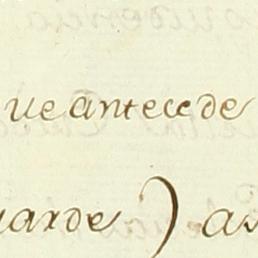 ue antecede
uarde) as